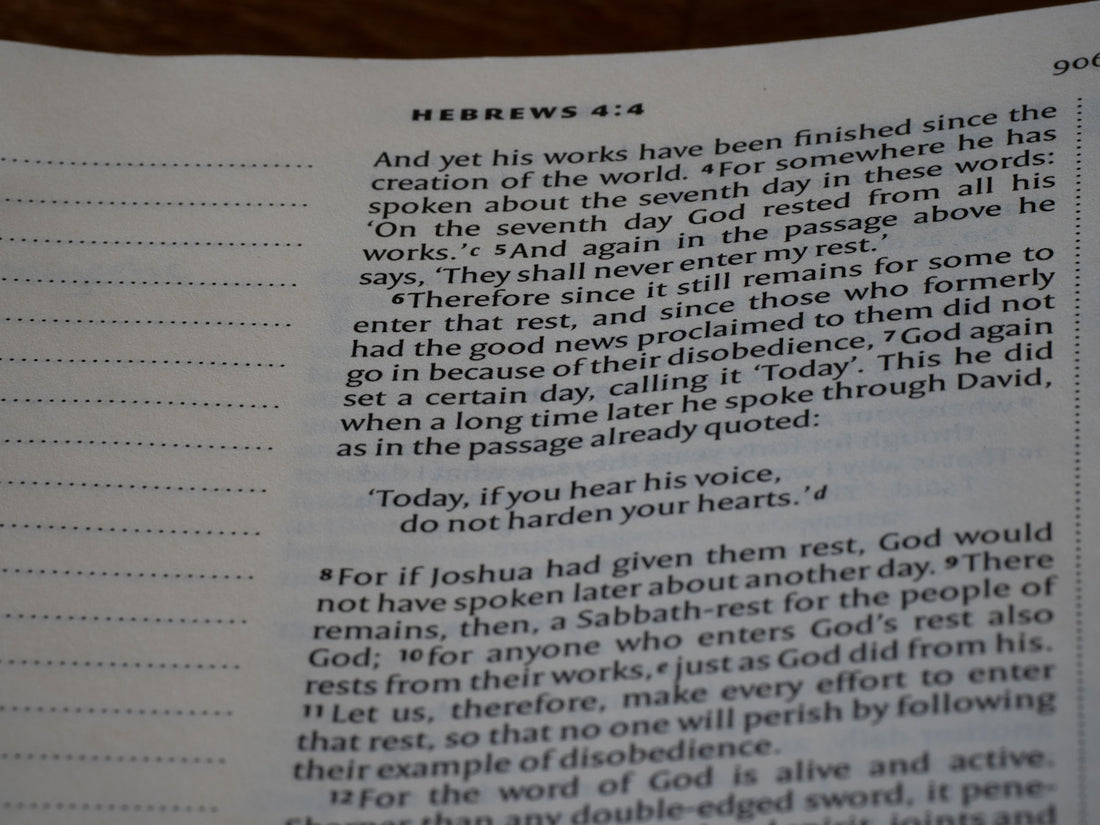 906
HEBREWS 4:4
And yet his works have been finished since the
creation of the world. 4For somewhere he has
spoken about the seventh day in these words:
‘On the seventh day God rested from all his
works.’c 5And again in the passage above he
says, ‘They shall never enter my rest.’
6Therefore since it still remains for some to
enter that rest, and since those who formerly
had the good news proclaimed to them did not
go in because of their disobedience, 7God again
set a certain day, calling it ‘Today’. This he did
when a long time later he spoke through David,
as in the passage already quoted:
‘Today, if you hear his voice,
do not harden your hearts.’d
8For if Joshua had given them rest, God would
not have spoken later about another day. 9There
remains, then, a Sabbath-rest for the people of
God; 10for anyone who enters God’s rest also
rests from their works,e just as God did from his.
11Let us, therefore, make every effort to enter
that rest, so that no one will perish by following
their example of disobedience.
12For the word of God is alive and active.
Sharper than any double-edged sword, it pene-
joints and